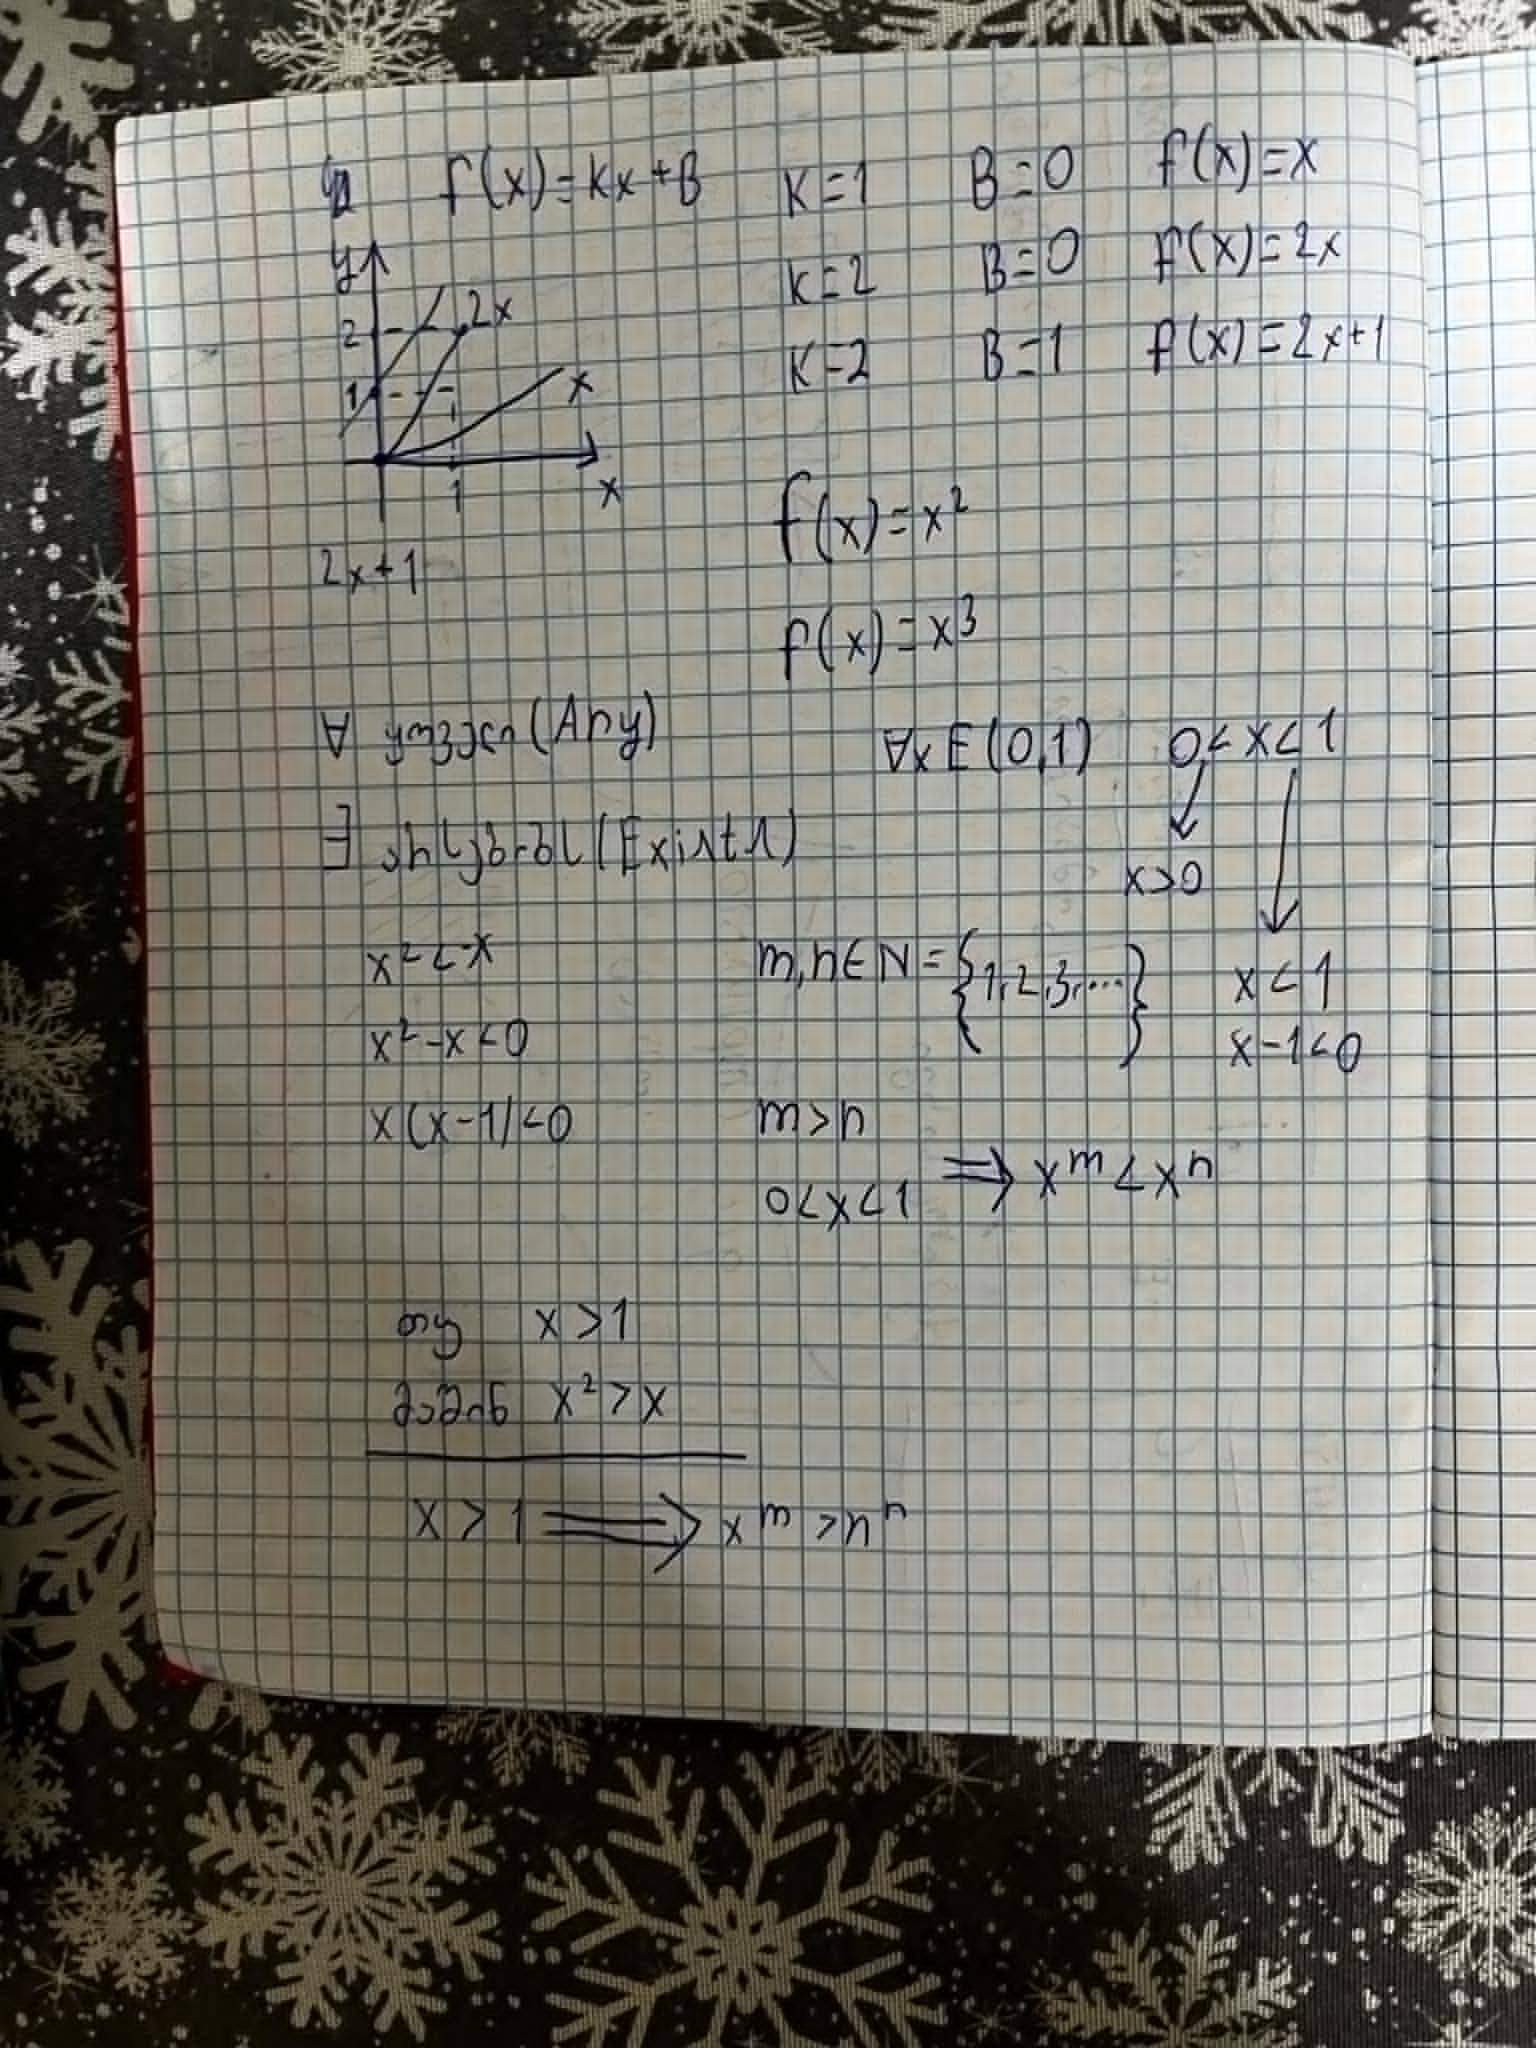 f(x)=kx+B K=1 B=0 f(x)=x
K=2 B=0 f(x)=2x
K=2 B=1 f(x)=2x+1
y
2 2x
1 x
1 x
2x+1
f(x)=x²
f(x)=x³
∀ ყოველი (Any) ∀x E (0,1) 0<x<1
∃ არსებობს (Exists)
x>0
x²<x m,n∈N={1,2,3,...} x<1
x²-x<0 x-1<0
x(x-1)<0 m>n
0<x<1 ⇒ x^m<x^n
თუ x>1
მაშინ x²>x
x>1 ⇒ x^m>n^n